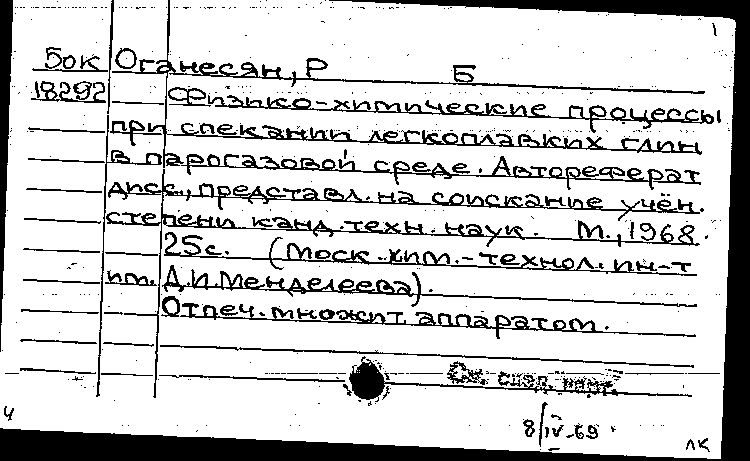 1
Бок Оганесян, Р Б
18292 Физико-химические процессы
при спекании легкоплавких глин
в парогазовой среде. Автореферат
дисс., представл. на соискание учён.
степени канд. техн. наук. М., 1968.
25с. (Моск. хим.-технол. ин-т
им. Д.И. Менделеева).
Отпеч. множит. аппаратом.
См. след. карт.
8/IV-69
ЛК
4